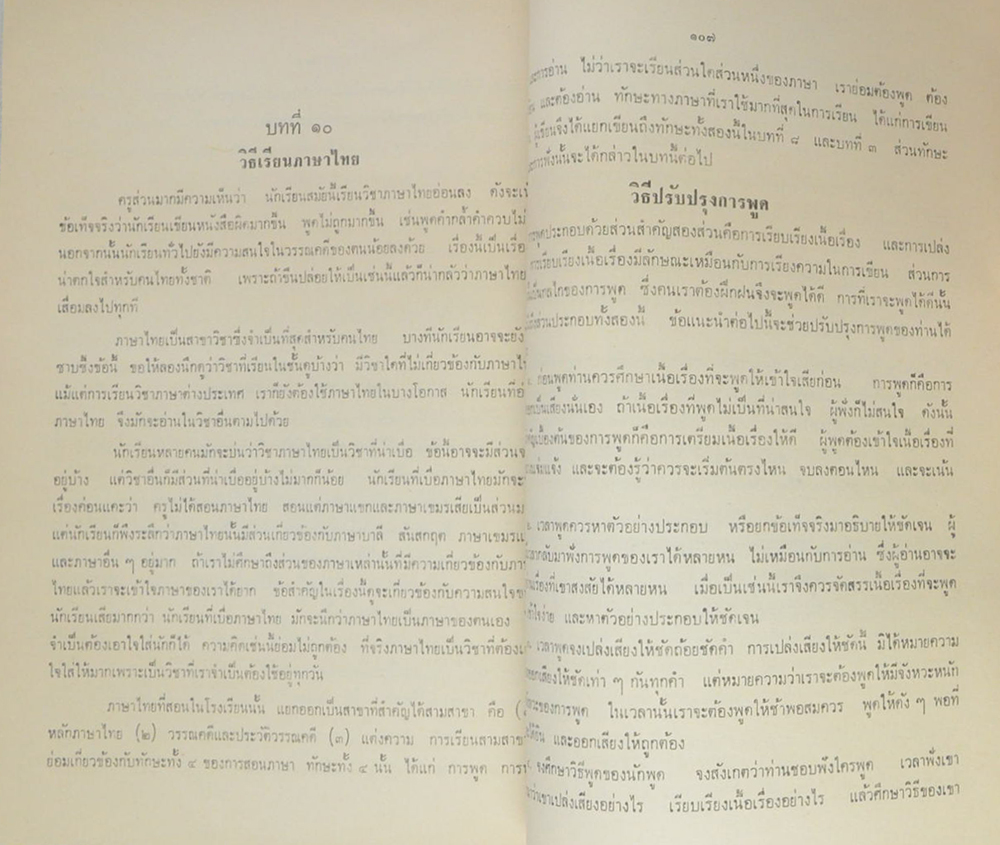 บทที่ ๑๐
วิธีเรียนภาษาไทย
ครูส่วนมากมีความเห็นว่า นักเรียนสมัยนี้เรียนวิชาภาษาไทยอ่อนลง ดังจะเ
ข้อเท็จจริงว่านักเรียนเขียนหนังสือผิดมากขึ้น พูดไม่ถูกมากขึ้น เช่นพูดคำกล้ำคำควบไม่
นอกจากนั้นนักเรียนทั่วไปยังมีความสนใจในวรรณคดีของตนน้อยลงด้วย เรื่องนี้เป็นเรื่อ
น่าตกใจสำหรับคนไทยทั้งชาติ เพราะถ้าขืนปล่อยให้เป็นเช่นนี้แล้วก็น่ากลัวว่าภาษาไทย
เสื่อมลงไปทุกที
ภาษาไทยเป็นสาขาวิชาซึ่งจำเป็นที่สุดสำหรับคนไทย บางทีนักเรียนอาจจะยัง
ซาบซึ้งข้อนี้ ขอให้ลองนึกดูว่าวิชาที่เรียนในชั้นดูบ้างว่า มีวิชาใดที่ไม่เกี่ยวข้องกับภาษาไ
แม้แต่การเรียนวิชาภาษาต่างประเทศ เราก็ยังต้องใช้ภาษาไทยในบางโอกาส นักเรียนที่อ่
ภาษาไทย จึงมักจะอ่านในวิชาอื่นตามไปด้วย
นักเรียนหลายคนมักจะบ่นว่าวิชาภาษาไทยเป็นวิชาที่น่าเบื่อ ข้อนี้อาจจะมีส่วนจ
อยู่บ้าง แต่วิชาอื่นก็มีส่วนที่น่าเบื่ออยู่บ้างไม่มากก็น้อย นักเรียนที่เบื่อภาษาไทยมักจะ
เรื่องค่อนแคะว่า ครูไม่ได้สอนภาษาไทย สอนแต่ภาษาแขกและภาษาเขมรเสียเป็นส่วนม
แต่นักเรียนก็พึงระลึกว่าภาษาไทยนั้นมีส่วนเกี่ยวข้องกับภาษาบาลี สันสกฤต ภาษาเขมร
และภาษาอื่น ๆ อยู่มาก ถ้าเราไม่ศึกษาถึงส่วนของภาษาเหล่านั้นที่มีความเกี่ยวข้องกับภา
ไทยแล้วเราจะเข้าใจภาษาของเราได้ยาก ข้อสำคัญในเรื่องนี้ดูจะเกี่ยวข้องกับความสนใจข
นักเรียนเสียมากกว่า นักเรียนที่เบื่อภาษาไทย มักจะนึกว่าภาษาไทยเป็นภาษาของตนเอง
จำเป็นต้องเอาใจใส่นักก็ได้ ความคิดเช่นนี้ย่อมไม่ถูกต้อง ที่จริงภาษาไทยเป็นวิชาที่ต้องเ
ใจใส่ให้มากเพราะเป็นวิชาที่เราจำเป็นต้องใช้อยู่ทุกวัน
ภาษาไทยที่สอนในโรงเรียนนั้น แยกออกเป็นสาขาที่สำคัญได้สามสาขา คือ (
หลักภาษาไทย (๒) วรรณคดีและประวัติวรรณคดี (๓) แต่งความ การเรียนสามสาข
ย่อมเกี่ยวข้องกับทักษะทั้ง ๔ ของการสอนภาษา ทักษะทั้ง ๔ นั้น ได้แก่ การพูด การ
๑๐๗
การอ่าน ไม่ว่าเราจะเรียนส่วนใดส่วนหนึ่งของภาษา เราย่อมต้องพูด ต้อง
และต้องอ่าน ทักษะทางภาษาที่เราใช้มากที่สุดในการเรียน ได้แก่การเขียน
ผู้เขียนจึงได้แยกเขียนถึงทักษะทั้งสองนี้ในบทที่ ๘ และบทที่ ๓ ส่วนทักษะ
การฟังนั้นจะได้กล่าวในบทนี้ต่อไป
วิธีปรับปรุงการพูด
ประกอบด้วยส่วนสำคัญสองส่วนคือการเรียบเรียงเนื้อเรื่อง และการเปล่ง
การเรียบเรียงเนื้อเรื่องมีลักษณะเหมือนกับการเรียงความในการเขียน ส่วนการ
กลไกของการพูด ซึ่งคนเราต้องฝึกฝนจึงจะพูดได้ดี การที่เราจะพูดได้ดีนั้น
มีส่วนประกอบทั้งสองนี้ ข้อแนะนำต่อไปนี้จะช่วยปรับปรุงการพูดของท่านได้
ก่อนพูดท่านควรศึกษาเนื้อเรื่องที่จะพูดให้เข้าใจเสียก่อน การพูดก็คือการ
เป็นเสียงนั่นเอง ถ้าเนื้อเรื่องที่พูดไม่เป็นที่น่าสนใจ ผู้ฟังก็ไม่สนใจ ดังนั้น
เบื้องต้นของการพูดก็คือการเตรียมเนื้อเรื่องให้ดี ผู้พูดต้องเข้าใจเนื้อเรื่องที่
แจ้ง และจะต้องรู้ว่าควรจะเริ่มต้นตรงไหน จบลงตอนไหน และจะเน้น
เวลาพูดควรหาตัวอย่างประกอบ หรือยกข้อเท็จจริงมาอธิบายให้ชัดเจน ผู้
กลับมาฟังการพูดของเราได้หลายหน ไม่เหมือนกับการอ่าน ซึ่งผู้อ่านอาจจะ
เรื่องที่เขาสงสัยได้หลายหน เมื่อเป็นเช่นนี้เราจึงควรจัดสรรเนื้อเรื่องที่จะพูด
ง่าย และหาตัวอย่างประกอบให้ชัดเจน
เวลาพูดจงเปล่งเสียงให้ชัดถ้อยชัดคำ การเปล่งเสียงให้ชัดนี้ มิได้หมายความ
เสียงให้ชัดเท่า ๆ กันทุกคำ แต่หมายความว่าเราจะต้องพูดให้มีจังหวะหนัก
ของการพูด ในเวลานั้นเราจะต้องพูดให้ช้าพอสมควร พูดให้ดัง ๆ พอที่
และออกเสียงให้ถูกต้อง
จงศึกษาวิธีพูดของนักพูด จงสังเกตว่าท่านชอบฟังใครพูด เวลาฟังเขา
ว่าเขาเปล่งเสียงอย่างไร เรียบเรียงเนื้อเรื่องอย่างไร แล้วศึกษาวิธีของเขา